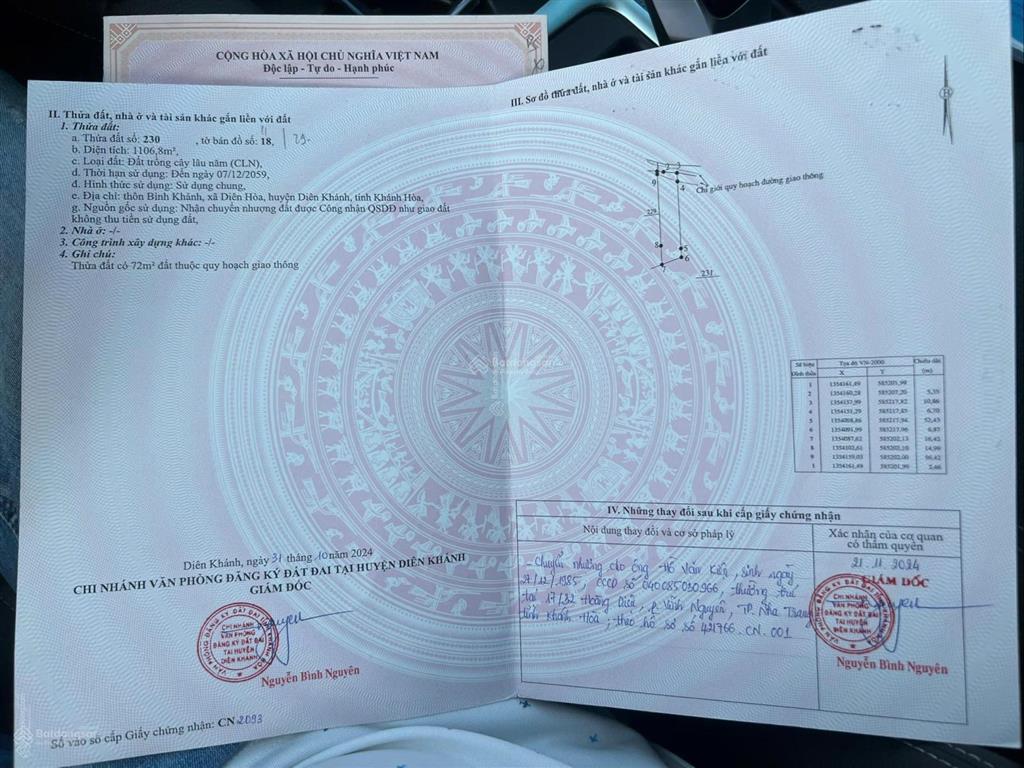 CỘNG HÒA XÃ HỘI CHỦ NGHĨA VIỆT NAM
Độc lập - Tự do - Hạnh phúc
II. Thửa đất, nhà ở và tài sản khác gắn liền với đất
1. Thửa đất:
a. Thửa đất số: 230 , tờ bản đồ số: 18,
b. Diện tích: 1106,8m²,
c. Loại đất: Đất trồng cây lâu năm (CLN),
d. Thời hạn sử dụng: Đến ngày 07/12/2059,
đ. Hình thức sử dụng: Sử dụng chung,
e. Địa chỉ: thôn Bình Khánh, xã Diên Hòa, huyện Diên Khánh, tỉnh Khánh Hòa,
g. Nguồn gốc sử dụng: Nhận chuyển nhượng đất được Công nhận QSDĐ như giao đất
không thu tiền sử dụng đất,
2. Nhà ở: -/-
3. Công trình xây dựng khác: -/-
4. Ghi chú:
Thửa đất có 72m² đất thuộc quy hoạch giao thông
Diên Khánh, ngày 31 tháng 10 năm 2024
CHI NHÁNH VĂN PHÒNG ĐĂNG KÝ ĐẤT ĐAI TẠI HUYỆN DIÊN KHÁNH
GIÁM ĐỐC
CHI NHÁNH
VĂN PHÒNG
ĐĂNG KÝ ĐẤT ĐAI
TẠI HUYỆN
DIÊN KHÁNH
Nguyễn Bình Nguyên
Số vào sổ cấp Giấy chứng nhận: CN 2093
III. Sơ đồ thửa đất, nhà ở và tài sản khác gắn liền với đất
2 3
9
4
Chỉ giới quy hoạch đường giao thông
229
8
5
6
7
231
Số hiệu đỉnh thửa Tọa độ VN-2000 Chiều dài (m)
X Y
1 1354161,49 585201,99
2 1354160,28 585207,20 5,35
3 1354157,99 585217,82 10,86
4 1354151,29 585217,85 6,70
5 1354098,86 585217,94 52,43
6 1354091,99 585217,96 6,87
7 1354087,62 585202,13 16,42
8 1354102,61 585202,10 14,99
9 1354159,03 585202,00 56,42
1 1354161,49 585201,99 2,46
IV. Những thay đổi sau khi cấp giấy chứng nhận
Nội dung thay đổi và cơ sở pháp lý
Xác nhận của cơ quan
có thẩm quyền
- Chuyển nhượng cho ông Hồ Văn Kiên, sinh ngày
27/12/1985, CCCD số 040085030966, thường trú
tại 17/32 Hoàng Diệu, p. Vĩnh Nguyên, TP. Nha Trang
tỉnh Khánh Hòa; theo hồ sơ số 421766.CN.001
21.11.2024
GIÁM ĐỐC
CHI NHÁNH
VĂN PHÒNG
ĐĂNG KÝ ĐẤT ĐAI
TẠI HUYỆN
DIÊN KHÁNH
Nguyễn Bình Nguyên
Batdongsan